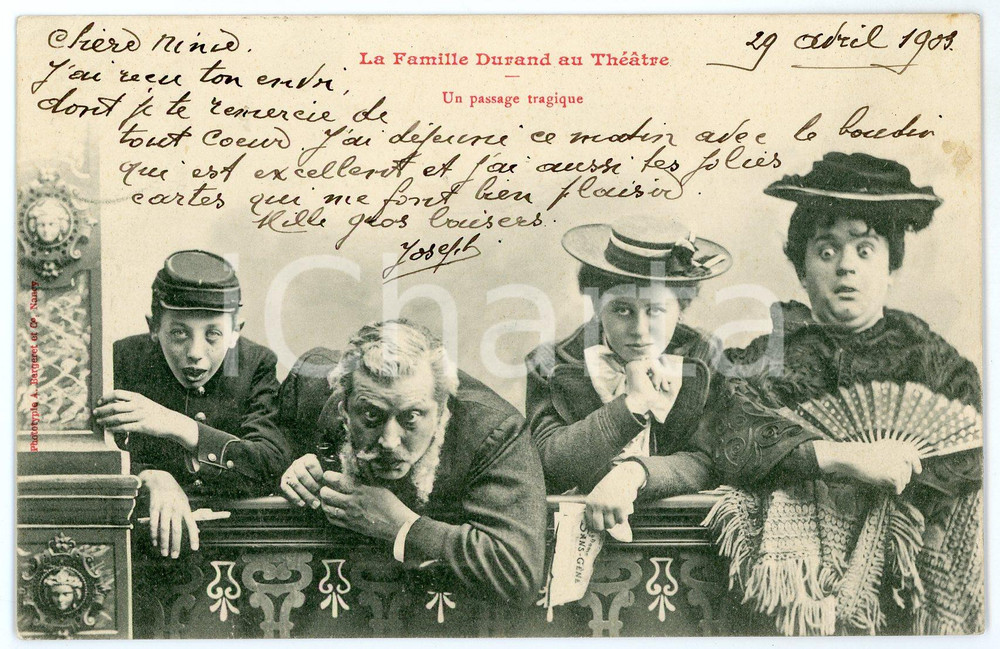 29 avril 1903.
Chère Ninie.
La Famille Durand au Théâtre
J'ai reçu ton envoi,
Un passage tragique
dont je te remercie de
tout coeur. J'ai déjeuné ce matin avec le boudin
qui est excellent et j'ai aussi tes jolies
cartes qui me font bien plaisir.
Mille gros baisers.
Joseph
iCharta
Phototypie A. Bergeret et Cie, Nancy
SANS-GÊNE